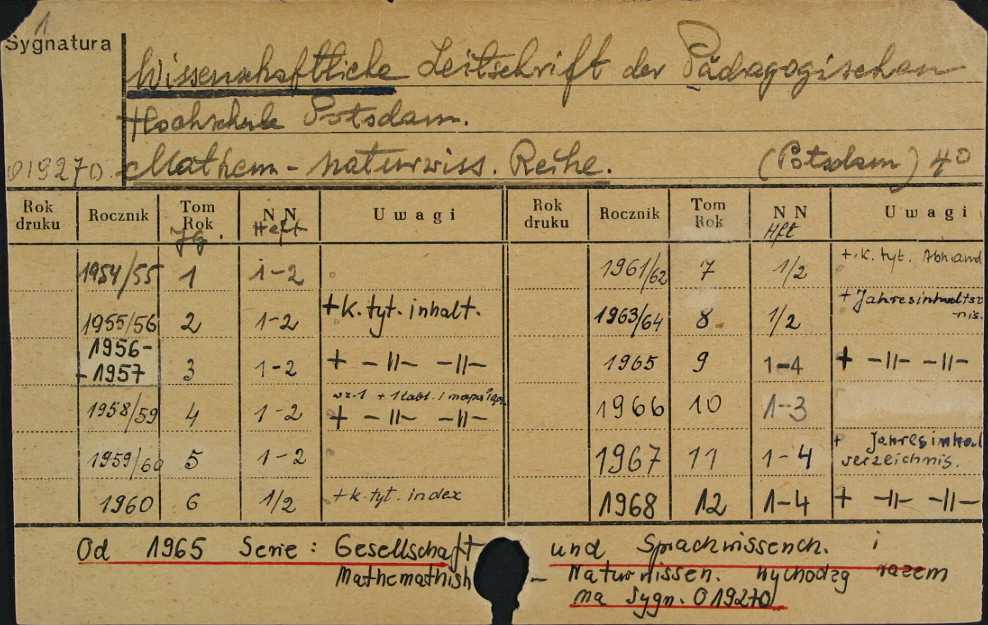 1
Sygnatura
Wissenschaftliche Zeitschrift der Pädagogischen
Hochschule Potsdam.
019270. Mathem-naturwiss. Reihe. (Potsdam) 4o
Rok druku Rocznik Tom Rok Jg. N N Heft Uwagi Rok druku Rocznik Tom Rok N N Hft Uwagi
1954/55 1 1-2 1961/62 7 1/2 + k. tyt.
1955/56 2 1-2 +k. tyt. inhalt. 1963/64 8 1/2 + Jahresinhaltsv
-nis.
1956-1957 3 1-2 + -||- -||- 1965 9 1-4 + -||- -||-
1958/59 4 1-2 + -||- -||- 1966 10 1-3
1959/60 5 1-2 1967 11 1-4 + Jahresinhal
verzeichnis.
1960 6 1/2 +k. tyt. index 1968 12 1-4 + -||- -||-
Od 1965 Serie: Gesellschaft und Sprachwissench. i
Mathemathish - Naturwissen. wychodzą razem
na Sygn. 019270